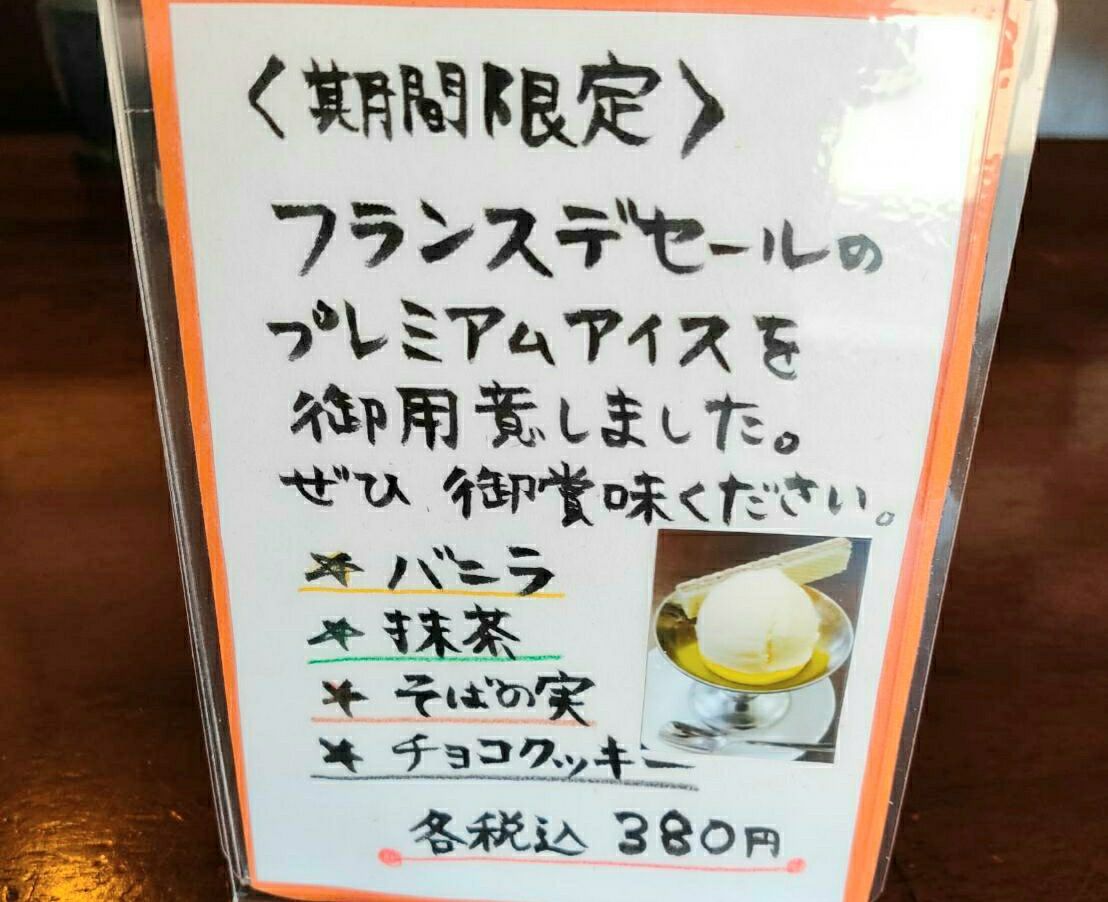 〈期間限定〉
フランスデセールの
プレミアムアイスを
御用意しました。
ぜひ 御賞味ください。
★ バニラ
★ 抹茶
★ そばの実
★ チョコクッキー
各税込 380円